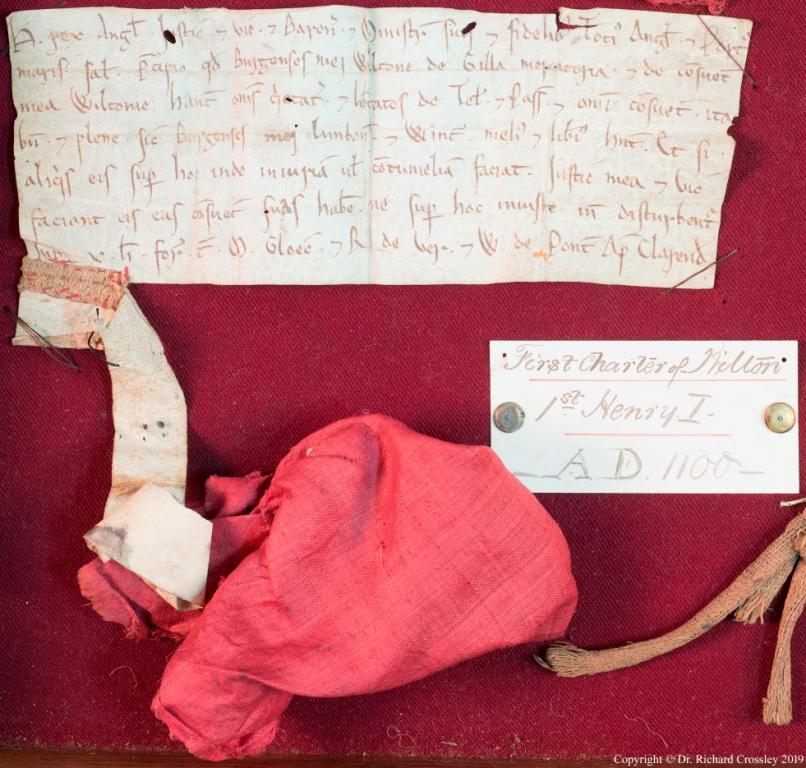 H. rex Angl. Justic. ⁊ vic. ⁊ Baron. ⁊ Ministr. suis ⁊ fidelib. Toti Angl. ⁊ Port
maris. sal. Precipio qd Burgenses mei Wiltone de Gilla mercatoria ⁊ de consuet
mea Wiltonie. hant omes qietat. ⁊ libtates de Tel. ⁊ Pass. ⁊ omi consuet. ita
bn. ⁊ plene sic Burgenses mei Lundon. ⁊ Winc. meli. ⁊ libi. hnt. Et si
aliqis eis sup hoc inde iniuriā ul contumeliā faciat. Justic mea ⁊ vic
faciant eis eas consuet habe. ne sup hoc iniuste in disturbent
⁊ R. de Ver. ⁊ W. de Pont Ap Clarend
First Charter of Wilton
1st Henry I.
A D. 1100
Copyright © Dr. Richard Crossley 2019